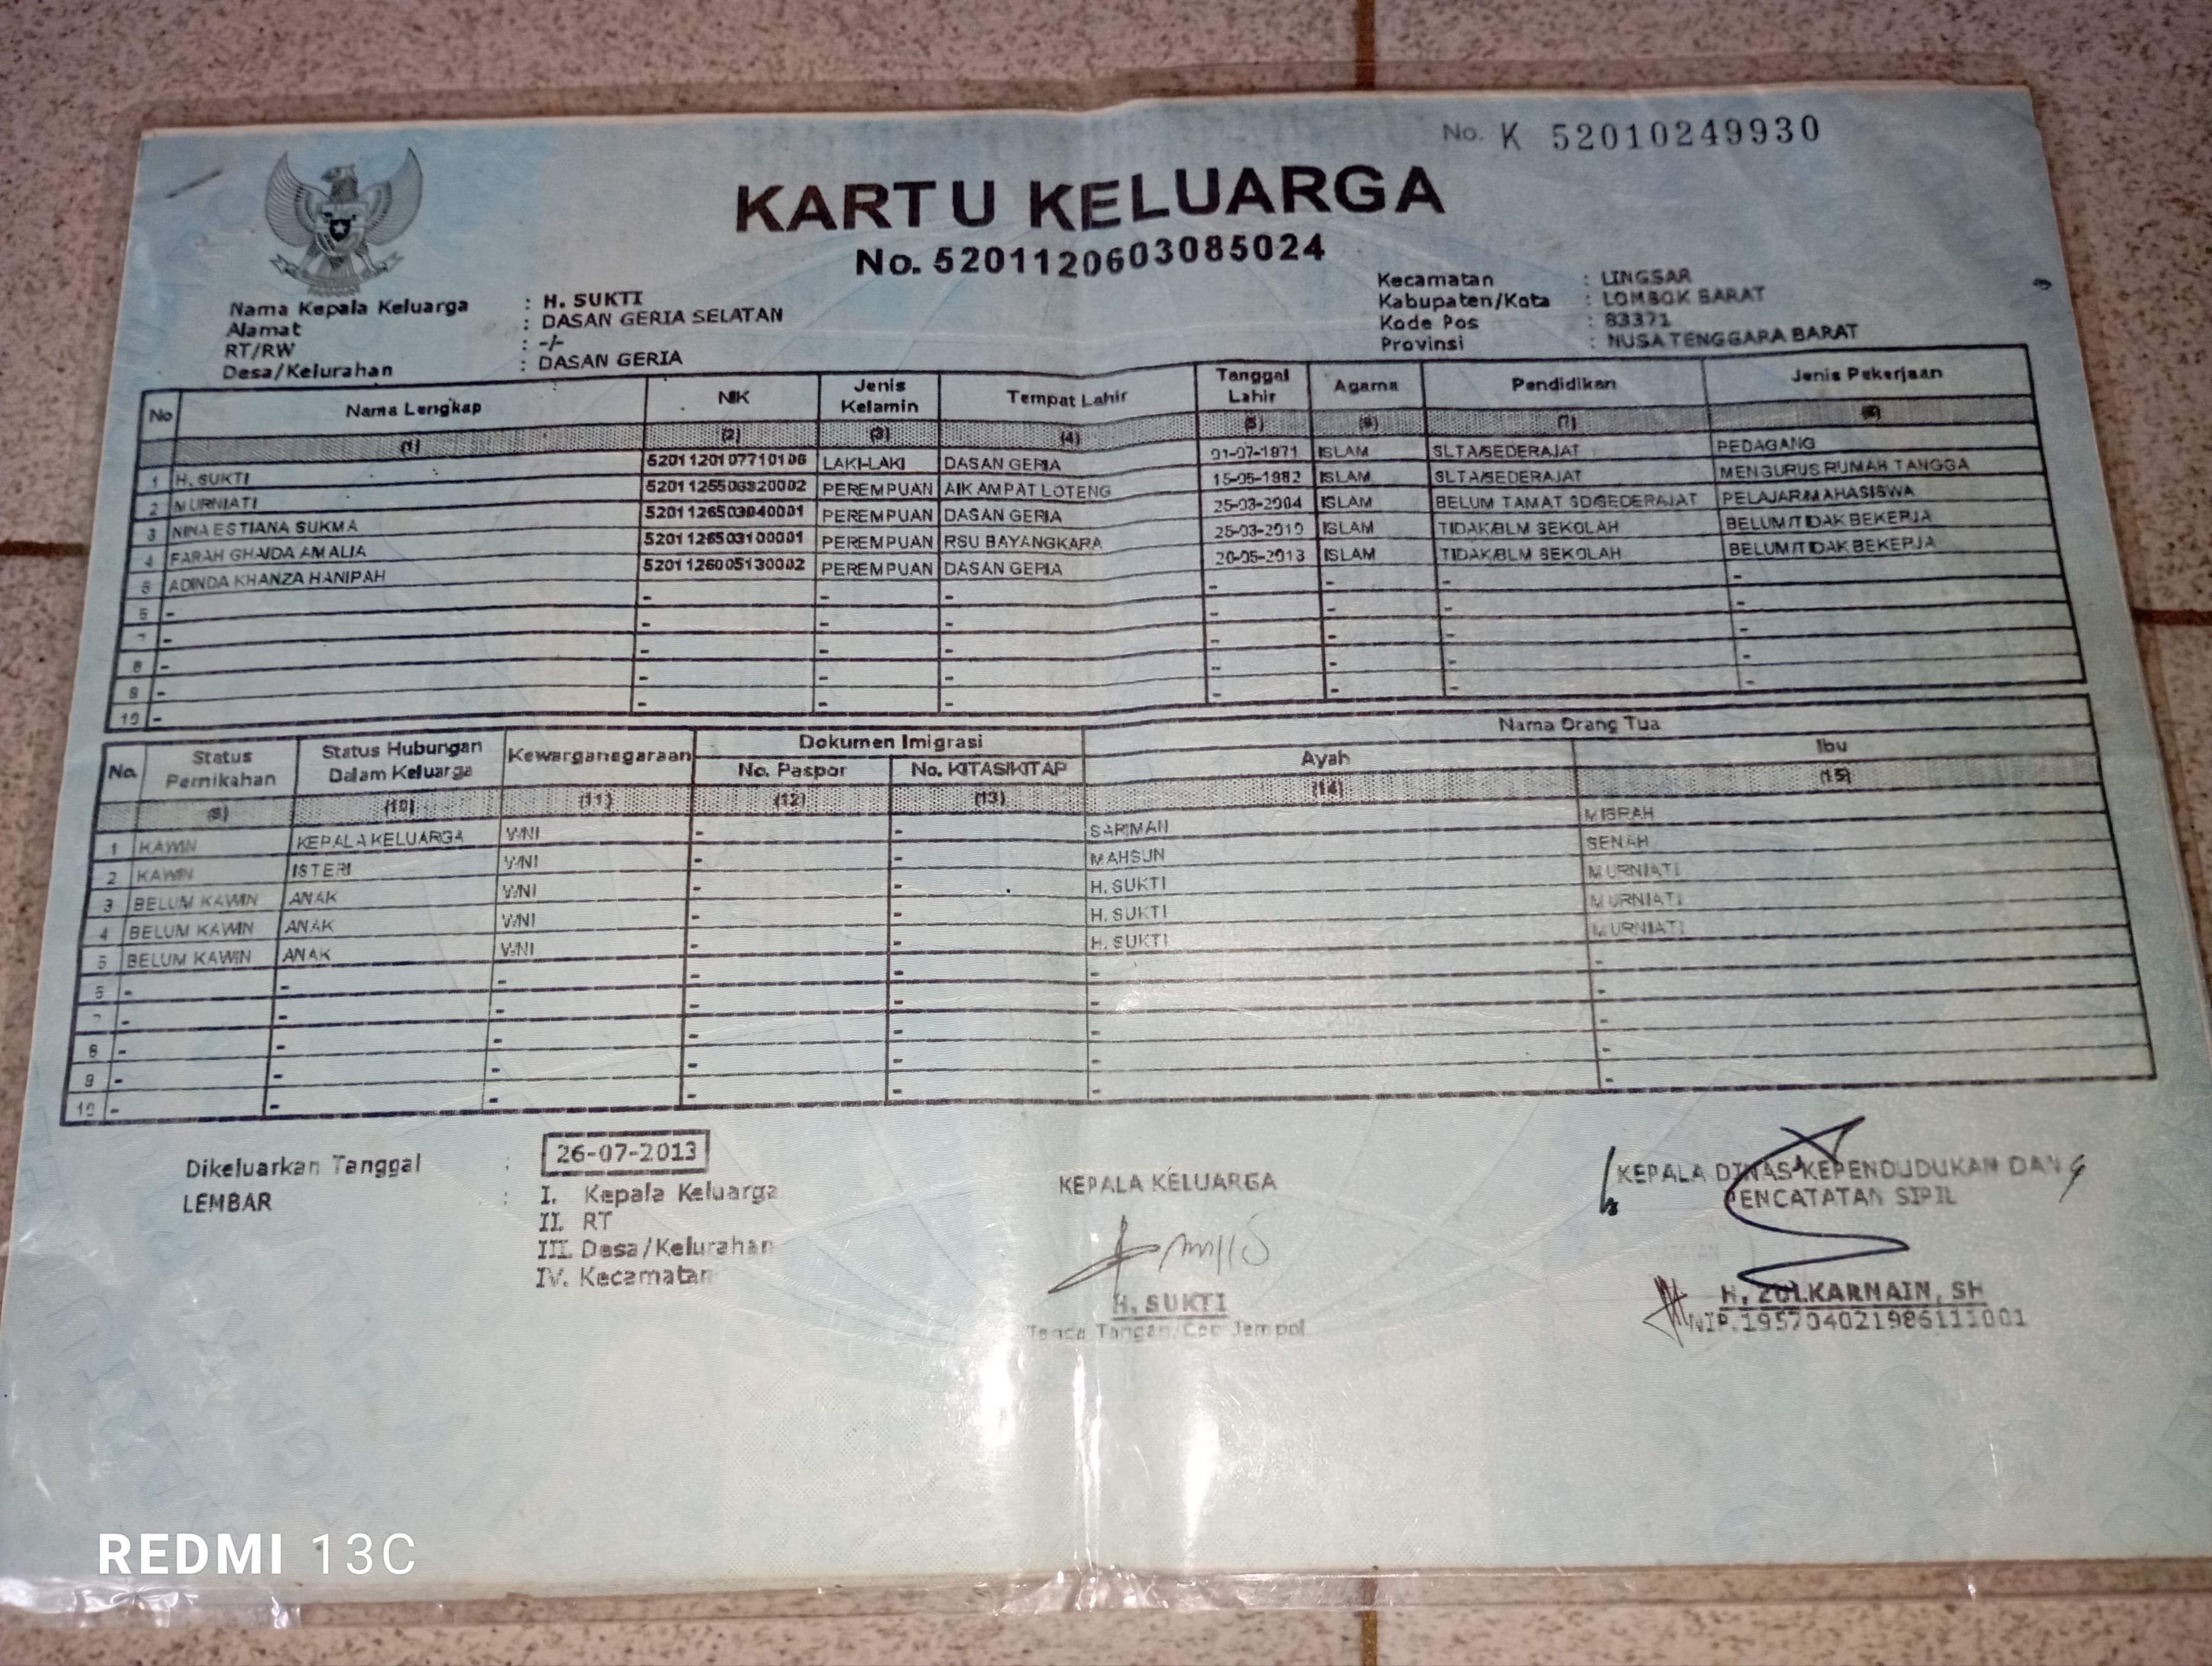 No. K 52010249930
KARTU KELUARGA
No. 5201120603085024
Nama Kepala Keluarga : H. SUKTI
Alamat : DASAN GERIA SELATAN
RT/RW : -/-
Desa/Kelurahan : DASAN GERIA
Kecamatan : LINGSAR
Kabupaten/Kota : LOMBOK BARAT
Kode Pos : 83371
Provinsi : NUSA TENGGARA BARAT
No Nama Lengkap NIK Jenis Kelamin Tempat Lahir Tanggal Lahir Agama Pendidikan Jenis Pekerjaan
(1) (2) (3) (4) (5) (6) (7) (8)
1 H. SUKTI 5201120107710106 LAKI-LAKI DASAN GERIA 01-07-1971 ISLAM SLTA/SEDERAJAT PEDAGANG
2 MURNIATI 5201125506820002 PEREMPUAN AIK AMPAT LOTENG 15-06-1982 ISLAM SLTA/SEDERAJAT MENGURUS RUMAH TANGGA
3 NINA ESTIANA SUKMA 5201126503040001 PEREMPUAN DASAN GERIA 25-03-2004 ISLAM BELUM TAMAT SD/SEDERAJAT PELAJAR/MAHASISWA
4 FARAH GHAIDA AMALIA 5201126503100001 PEREMPUAN RSU BAYANGKARA 25-03-2010 ISLAM TIDAK/BLM SEKOLAH BELUM/TIDAK BEKERJA
5 ADINDA KHANZA HANIPAH 5201126005130002 PEREMPUAN DASAN GERIA 20-05-2013 ISLAM TIDAK/BLM SEKOLAH BELUM/TIDAK BEKERJA
6 - - - - - - - -
7 - - - - - - - -
8 - - - - - - - -
9 - - - - - - - -
10 - - - - - - - -
No. Status Pernikahan Status Hubungan Dalam Keluarga Kewarganegaraan Dokumen Imigrasi Nama Orang Tua
No. Paspor No. KITAS/KITAP Ayah Ibu
(9) (10) (11) (12) (13) (14) (15)
1 KAWIN KEPALA KELUARGA WNI - - SARIMAN MISRAH
2 KAWIN ISTERI WNI - - MAHSUN SENAH
3 BELUM KAWIN ANAK WNI - - H. SUKTI MURNIATI
4 BELUM KAWIN ANAK WNI - - H. SUKTI MURNIATI
5 BELUM KAWIN ANAK WNI - - H. SUKTI MURNIATI
6 - - - - - - -
7 - - - - - - -
8 - - - - - - -
9 - - - - - - -
10 - - - - - - -
Dikeluarkan Tanggal : 26-07-2013
LEMBAR : I. Kepala Keluarga
II. RT
III. Desa/Kelurahan
IV. Kecamatan
KEPALA KELUARGA
H. SUKTI
Tanda Tangan/Cap Jempol
KEPALA DINAS KEPENDUDUKAN DAN
PENCATATAN SIPIL
H. ZULKARNAIN, SH
NIP.195704021986111001
REDMI 13C